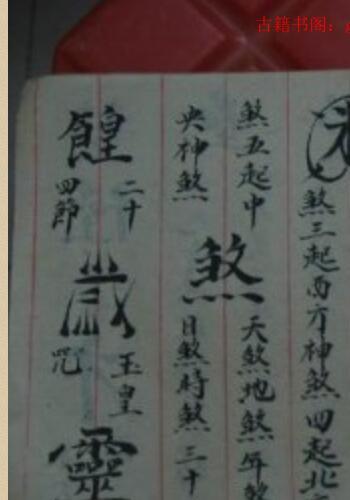 古籍书阁：
煞三起西方神煞四起北
煞五起中
央神煞
煞
天煞地煞年煞
日煞時煞三十
二十
四節
歲
玉皇
咒
靈